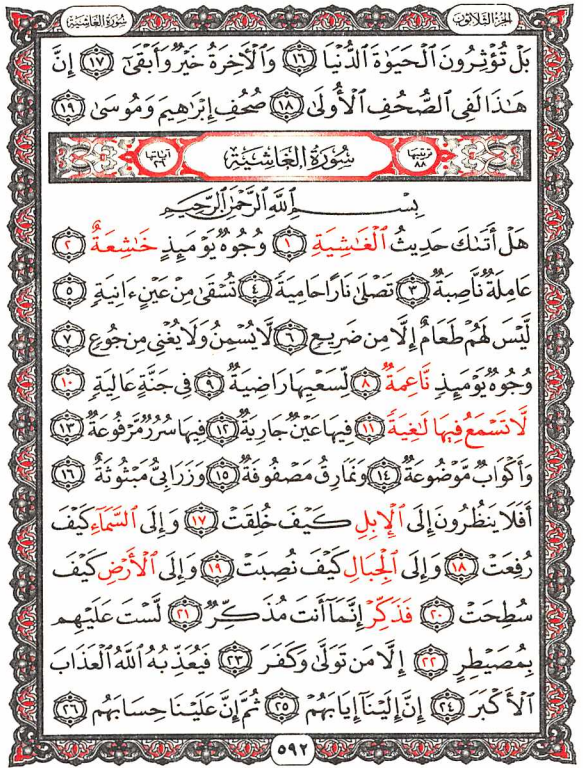 الجزء الثلاثون
سورة الغاشية
بَلْ تُؤْثِرُونَ ٱلْحَيَوٰةَ ٱلدُّنْيَا ١٦ وَٱلْءَاخِرَةُ خَيْرٌ وَأَبْقَىٰٓ ١٧ إِنَّ
هَـٰذَا لَفِى ٱلصُّحُفِ ٱلْأُولَىٰ ١٨ صُحُفِ إِبْرَٰهِيمَ وَمُوسَىٰ ١٩
ترتيبها ٨٨
سُورَةُ الْغَاشِيَةِ
آياتها ٢٦
بِسْمِ ٱللَّهِ ٱلرَّحْمَـٰنِ ٱلرَّحِيمِ
هَلْ أَتَىٰكَ حَدِيثُ ٱلْغَـٰشِيَةِ ١ وُجُوهٌ يَوْمَئِذٍ خَـٰشِعَةٌ ٢
عَامِلَةٌ نَّاصِبَةٌ ٣ تَصْلَىٰ نَارًا حَامِيَةً ٤ تُسْقَىٰ مِنْ عَيْنٍ ءَانِيَةٍ ٥
لَّيْسَ لَهُمْ طَعَامٌ إِلَّا مِن ضَرِيعٍ ٦ لَّا يُسْمِنُ وَلَا يُغْنِى مِن جُوعٍ ٧
وُجُوهٌ يَوْمَئِذٍ نَّاعِمَةٌ ٨ لِّسَعْيِهَا رَاضِيَةٌ ٩ فِى جَنَّةٍ عَالِيَةٍ ١٠
لَّا تَسْمَعُ فِيهَا لَـٰغِيَةً ١١ فِيهَا عَيْنٌ جَارِيَةٌ ١٢ فِيهَا سُرُرٌ مَّرْفُوعَةٌ ١٣
وَأَكْوَابٌ مَّوْضُوعَةٌ ١٤ وَنَمَارِقُ مَصْفُوفَةٌ ١٥ وَزَرَابِىُّ مَبْثُوثَةٌ ١٦
أَفَلَا يَنظُرُونَ إِلَى ٱلْإِبِلِ كَيْفَ خُلِقَتْ ١٧ وَإِلَى ٱلسَّمَآءِ كَيْفَ
رُفِعَتْ ١٨ وَإِلَى ٱلْجِبَالِ كَيْفَ نُصِبَتْ ١٩ وَإِلَى ٱلْأَرْضِ كَيْفَ
سُطِحَتْ ٢٠ فَذَكِّرْ إِنَّمَآ أَنتَ مُذَكِّرٌ ٢١ لَّسْتَ عَلَيْهِم
بِمُصَيْطِرٍ ٢٢ إِلَّا مَن تَوَلَّىٰ وَكَفَرَ ٢٣ فَيُعَذِّبُهُ ٱللَّهُ ٱلْعَذَابَ
ٱلْأَكْبَرَ ٢٤ إِنَّ إِلَيْنَآ إِيَابَهُمْ ٢٥ ثُمَّ إِنَّ عَلَيْنَا حِسَابَهُم ٢٦
٥٩٢